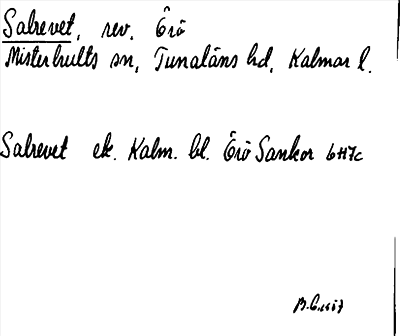 Salrevet, rev. Örö
Misterhults sn, Tunaläns hd, Kalmar l.
Salrevet ek. Kalm. bl. Örö Sankor 6H7c